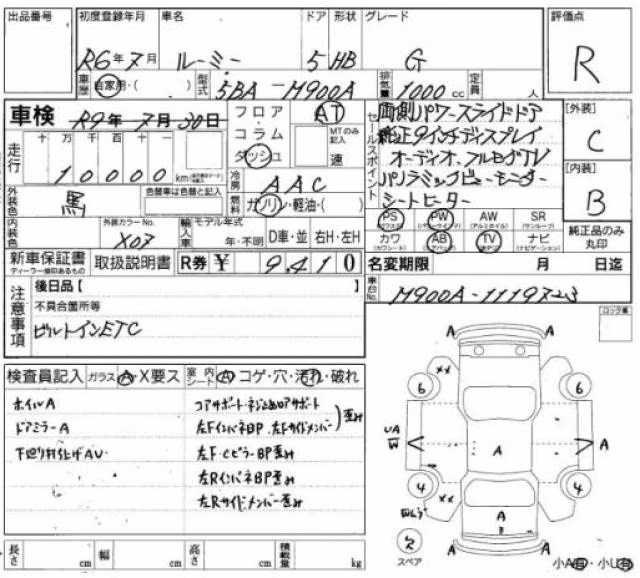 出品番号 初度登録年月 車名 ドア 形状 グレード 評価点
R6年7月 ルーミー 5 HB G R
車歴 自家用・( ) 型式 5BA-M900A 排気量 1000cc 定員 人
車検 R9年7月30日 フロア・コラム・ダッシュ AT MTのみ記入 速
走行 十 万 千 百 十 一
10000km
外装色 黒 色替車は色替と記入 冷房 AAC
燃料 ガソリン・軽油・( )
内装色 外装カラーNo. X07 輸入車 モデル年式 年・不明 D車・並 右H・左H
セールスポイント
両側パワースライドドア
純正9インチディスプレイ
オーディオ、フルセグTV
パノラミックビューモニター
シートヒーター
[外装] C
[内装] B
PS (パワステ) PW (パワーウインドウ) AW (アルミホイル) SR (サンルーフ)
カワ (カワシート) AB (エアバッグ) TV ナビ (ナビゲーション) 純正品のみ丸印
新車保証書 ディーラー捺印あるもの 取扱説明書 R券 ¥ 9,410
名変期限 月 日迄
車台No. M900A-1119723
注意事項
後日品【 】
不具合箇所等
ビルトインETC
ロック車
検査員記入 ガラス A・X要ス 室内シート A コゲ・穴・汚れ・破れ
ホイルA
ドアミラーA
下廻り打上げAU
コアサポート・ネジ止めロアサポート
左FインパネBP・左Fサイドメンバー 歪み
左F・CピラーBP歪み
左RインパネBP歪み
左Rサイドメンバー歪み
A
A
6 XX 6
UA
W A A
4 XX 4
A
B
2 スペア
A A
小A有・小U有
長さ cm 幅 cm 高さ cm 積載量 kg